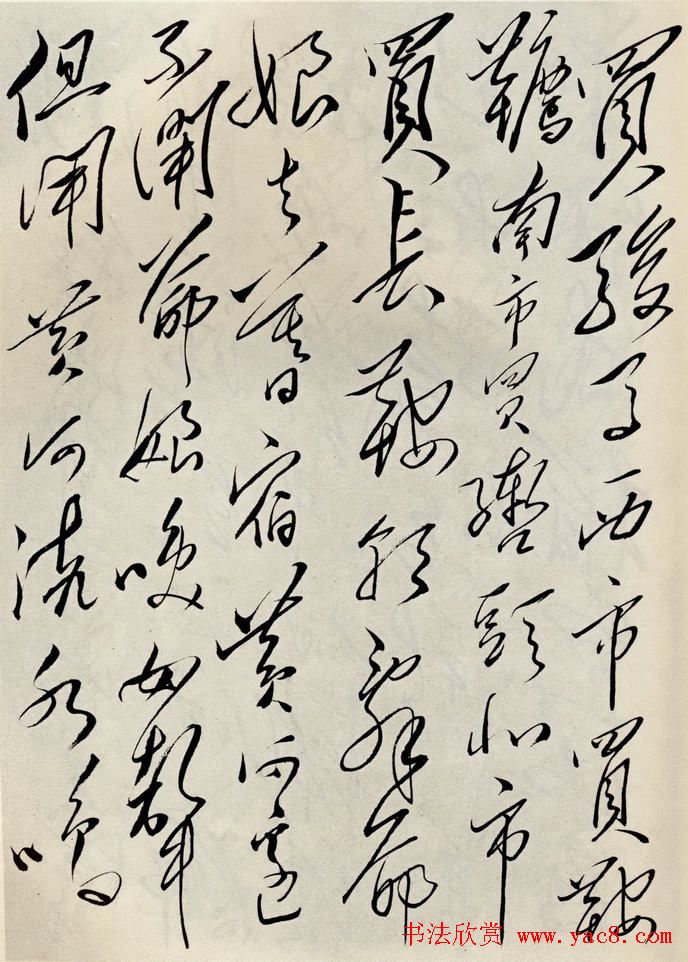 買駿馬西市買鞍
韉南市買轡頭北市
買長鞭朝辭爺
娘去暮宿黃河邊
不聞爺娘喚女聲
但聞黃河流水鳴
书法欣赏 www.yac8.com